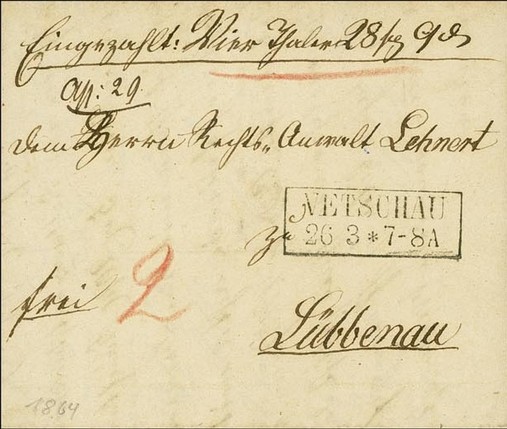 Eingezahlt: Vier Thaler 28 sg 9 d
29
dem Herrn Rechts„ Anwalt Lehnert
VETSCHAU
26 3 * 7-8A
zu
frei 2
Lübbenau
1864